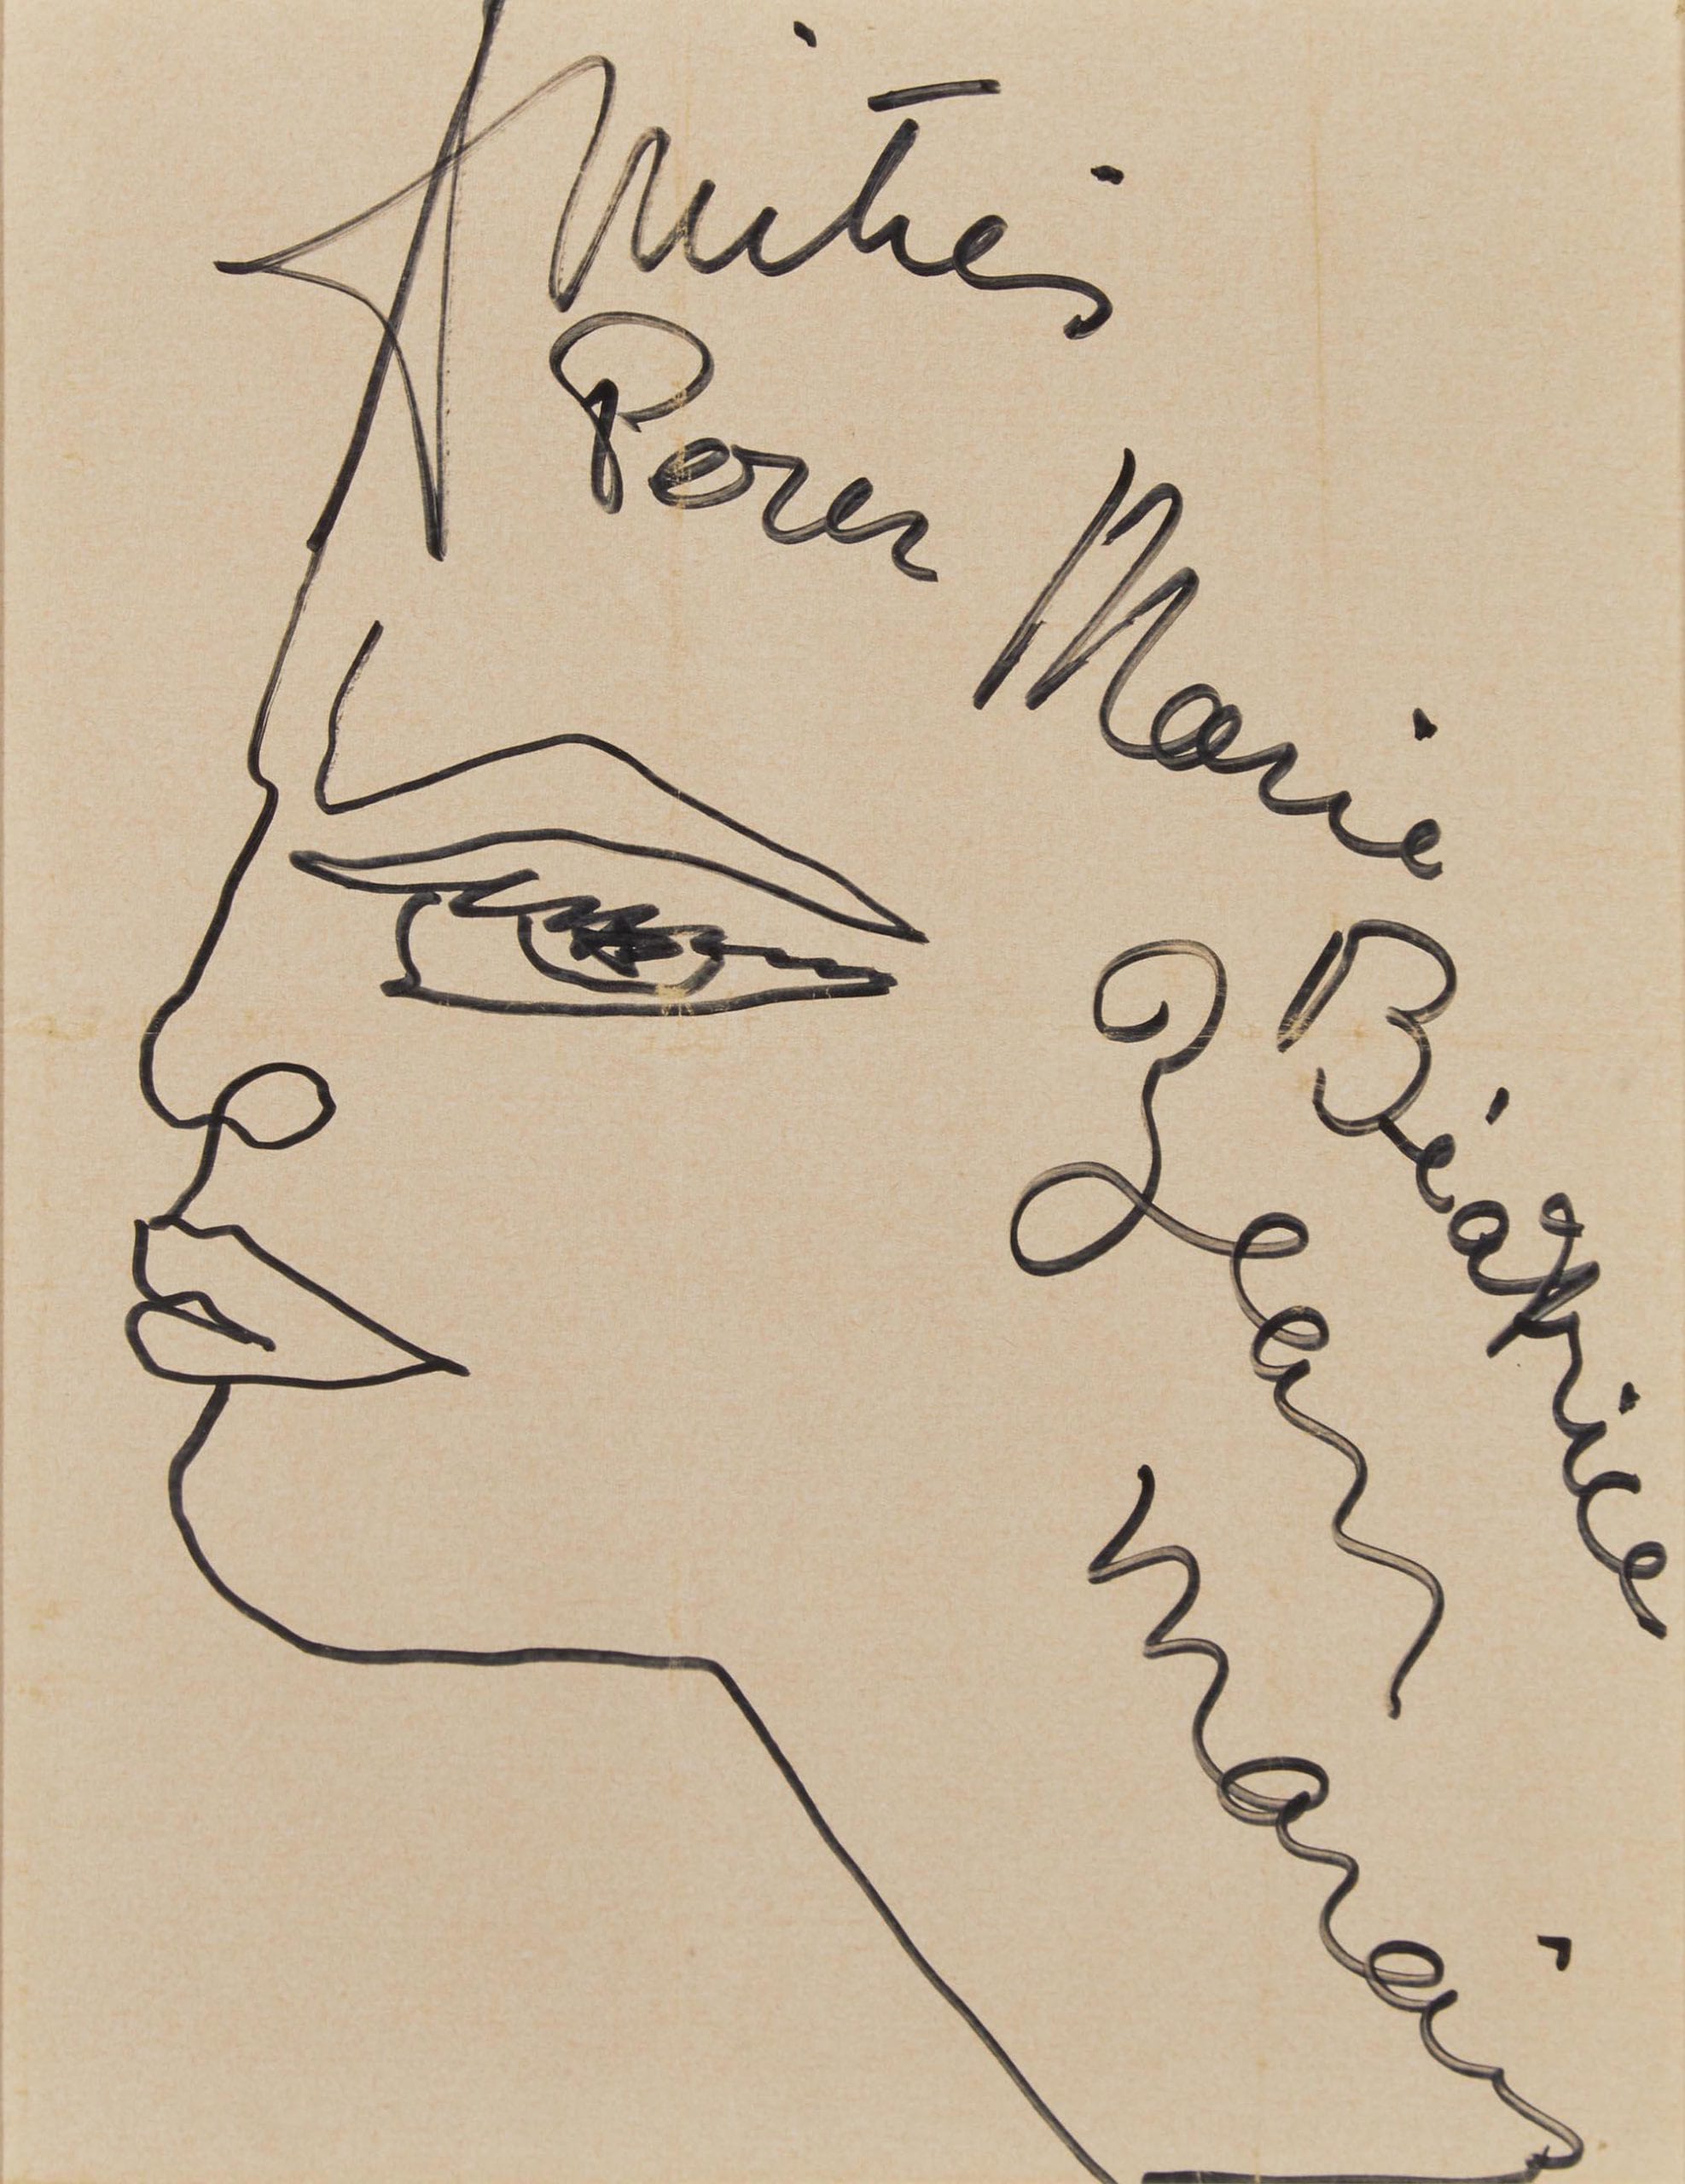 Amitiés
Pour
Marie
Béatrice
Jean
Marais